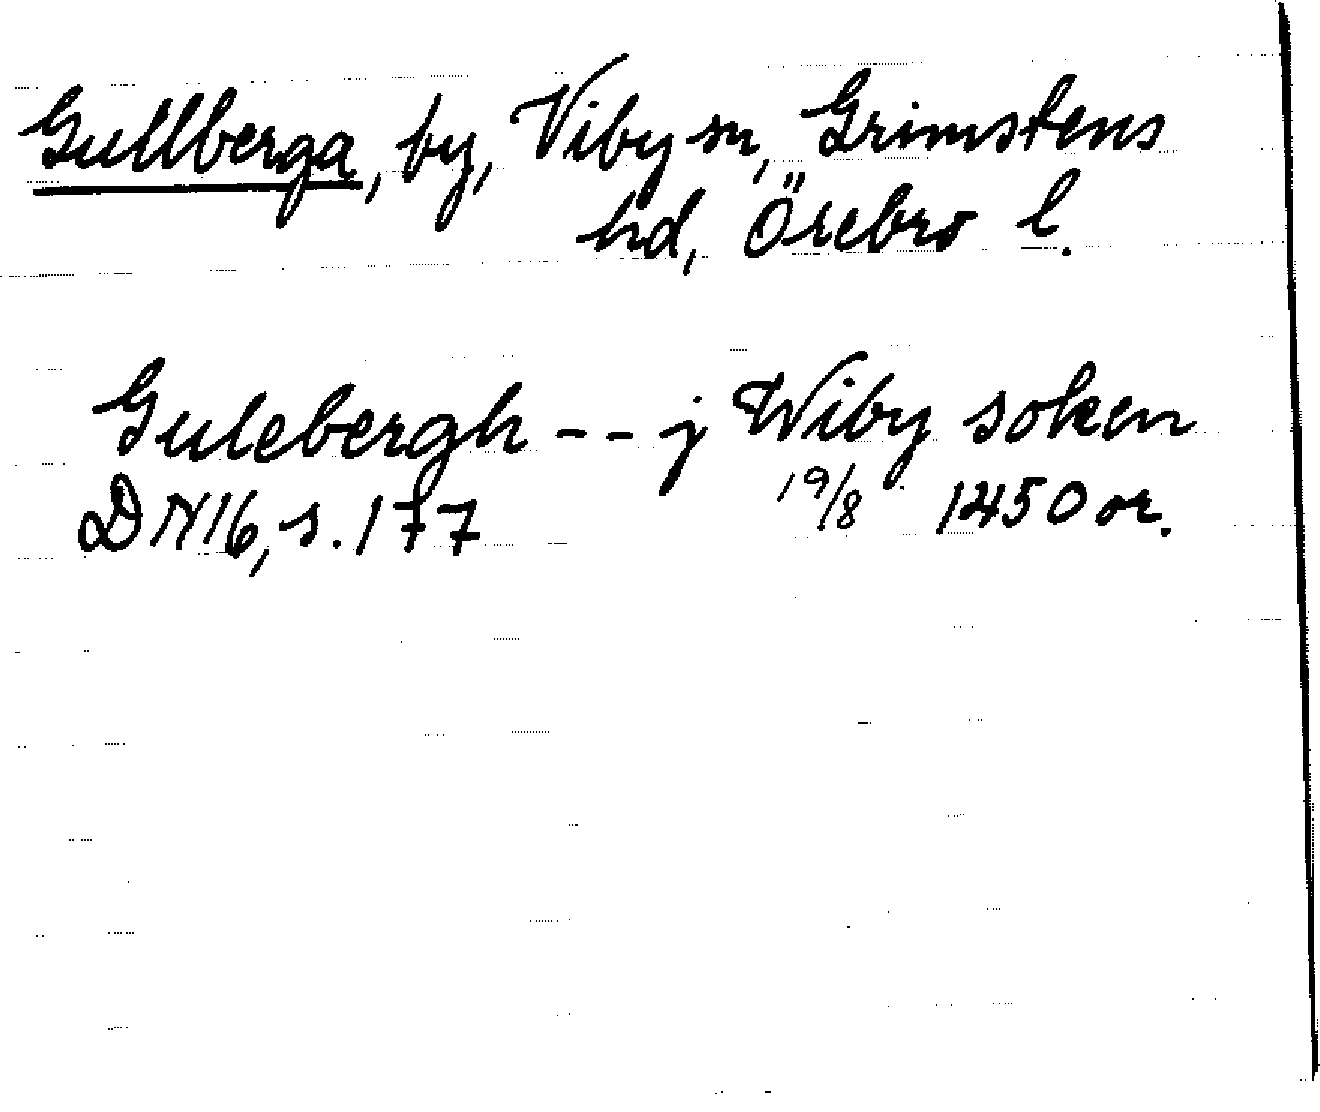 Gullberga, by, Viby sn, Grimstens
hd, Örebro l.
Gulebergh -- j Wiby soken
DN16, s. 177 19/8 1450 or.